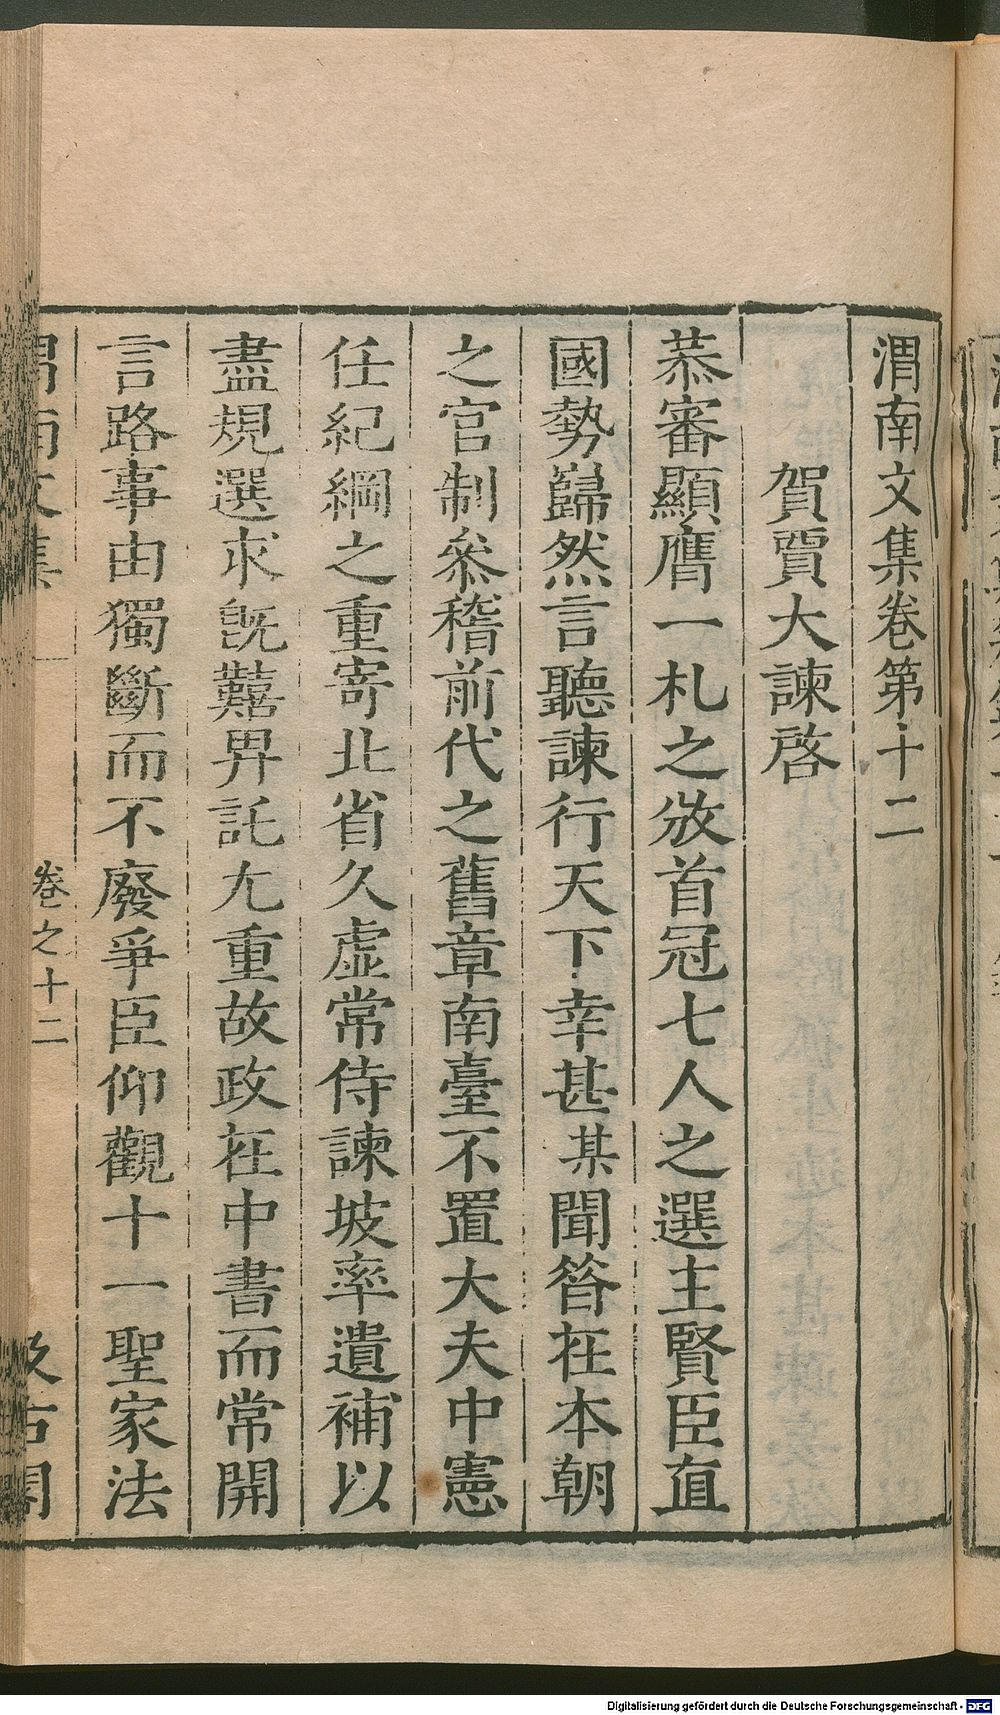 渭南文集卷第十二
賀賈大諫啓
恭審顯膺一札之放首冠七人之選主賢臣直
國勢巋然言聽諫行天下幸甚某聞昝在本朝
之官制叅稽前代之舊章南臺不置大夫中憲
任紀綱之重寄北省久虛常侍諫坡率遺補以
盡規選求旣囏畀託尤重故政在中書而常開
言路事由獨斷而不廢爭臣仰觀十一聖家法
渭南文集
卷之十二
汲古閣
Digitalisierung gefördert durch die Deutsche Forschungsgemeinschaft - DFG